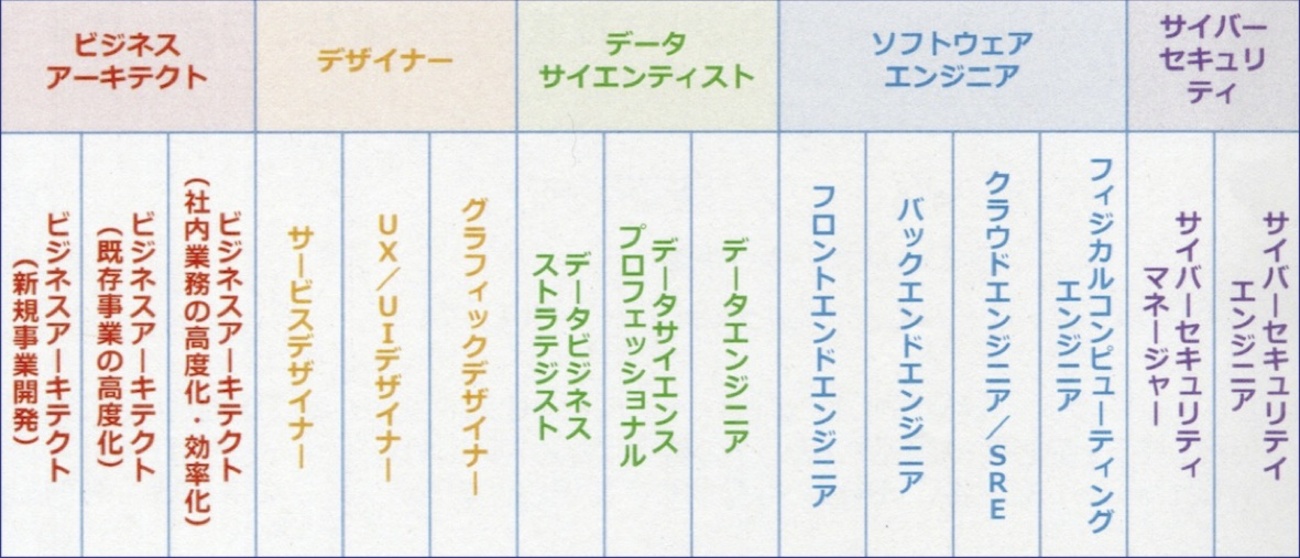 ビジネス
アーキテクト
デザイナー
データ
サイエンティスト
ソフトウェア
エンジニア
サイバー
セキュリ
ティ
ビジネスアーキテクト
（新規事業開発）
ビジネスアーキテクト
（既存事業の高度化）
ビジネスアーキテクト
（社内業務の高度化・効率化）
サービスデザイナー
UX／UIデザイナー
グラフィックデザイナー
データビジネス
ストラテジスト
データサイエンス
プロフェッショナル
データエンジニア
フロントエンドエンジニア
バックエンドエンジニア
クラウドエンジニア／SRE
フィジカルコンピューティング
エンジニア
サイバーセキュリティ
マネージャー
サイバーセキュリティ
エンジニア